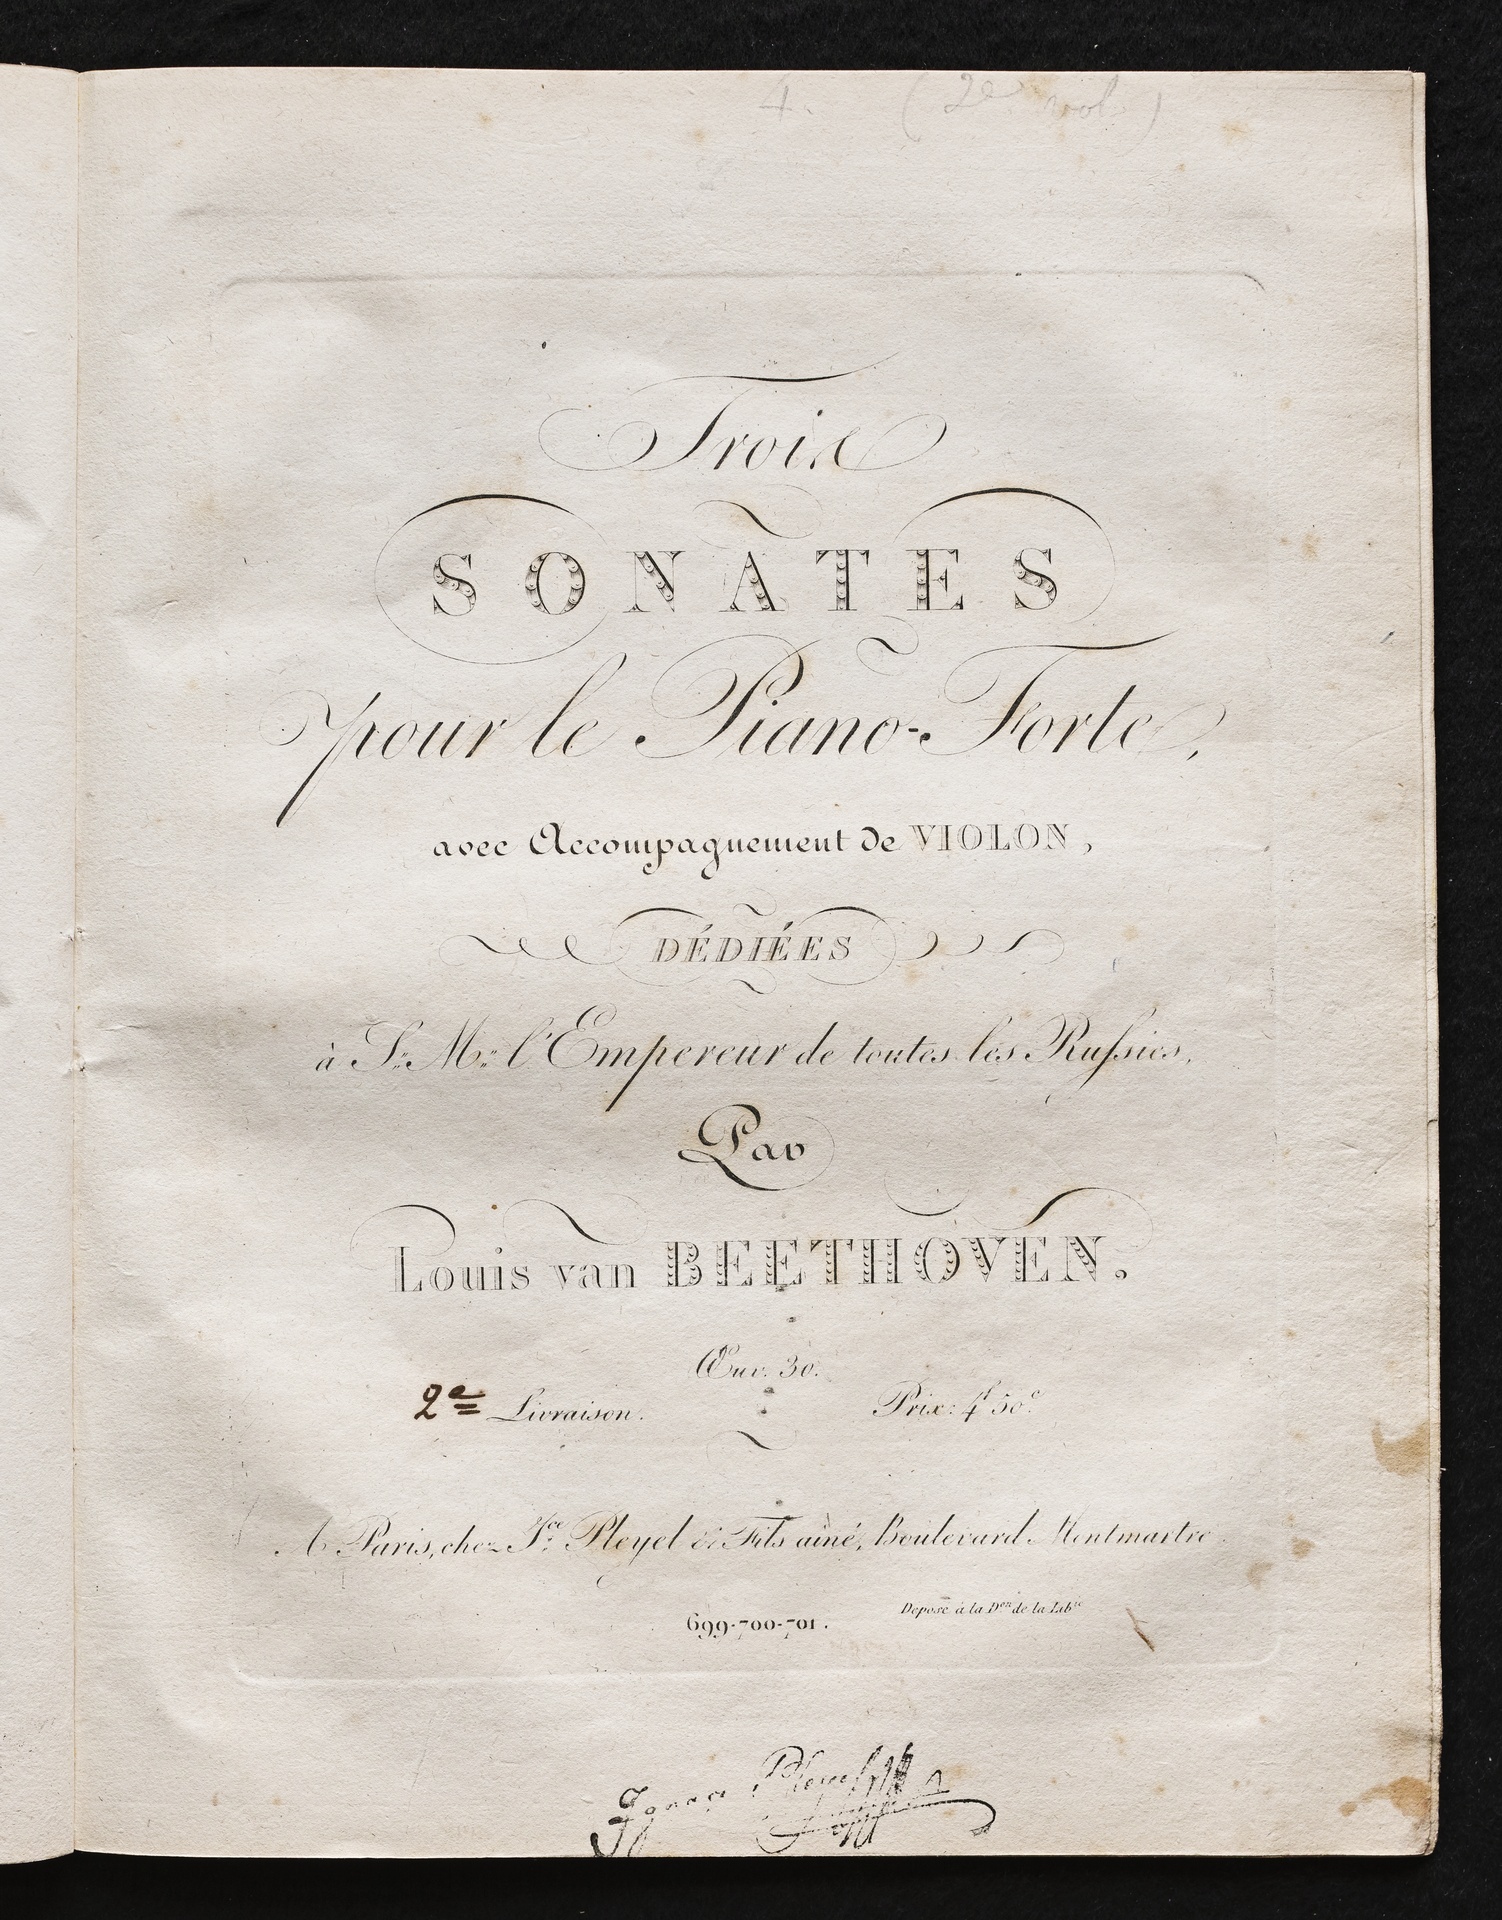 4. (2e vol)
Trois
SONATES
pour le Piano-Forte,
avec Accompagnement de VIOLON,
DÉDIÉES
à S.. M.. l'Empereur de toutes les Russies,
Par
Louis van BEETHOVEN.
Œuv. 30.
2e Livraison. Prix: 4f 50c
A Paris, chez Ice Pleyel & Fils ainé, Boulevard Montmartre.
699-700-701. Deposé à la Don de la Libie
Ignace Pleyel